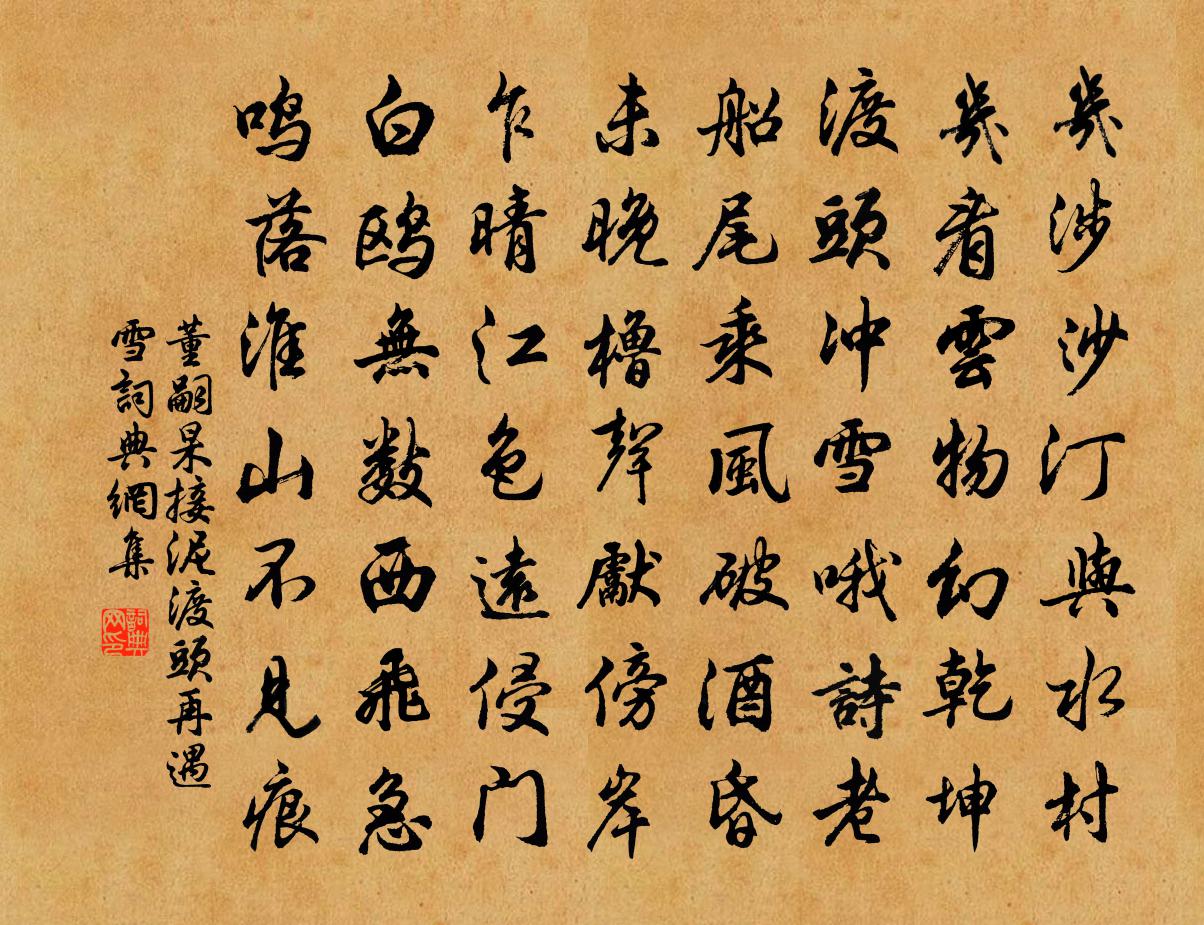 幾涉沙汀與水村
幾看雲物幻乾坤
渡頭冲雪哦詩老
船尾乘風破酒昏
未晚櫓聲獻傍岸
乍晴江色遠侵门
白鸥無数西飛急
鸣落淮山不見痕
董嗣杲接泥渡頭再遇
雪詞典網集
詞典网印